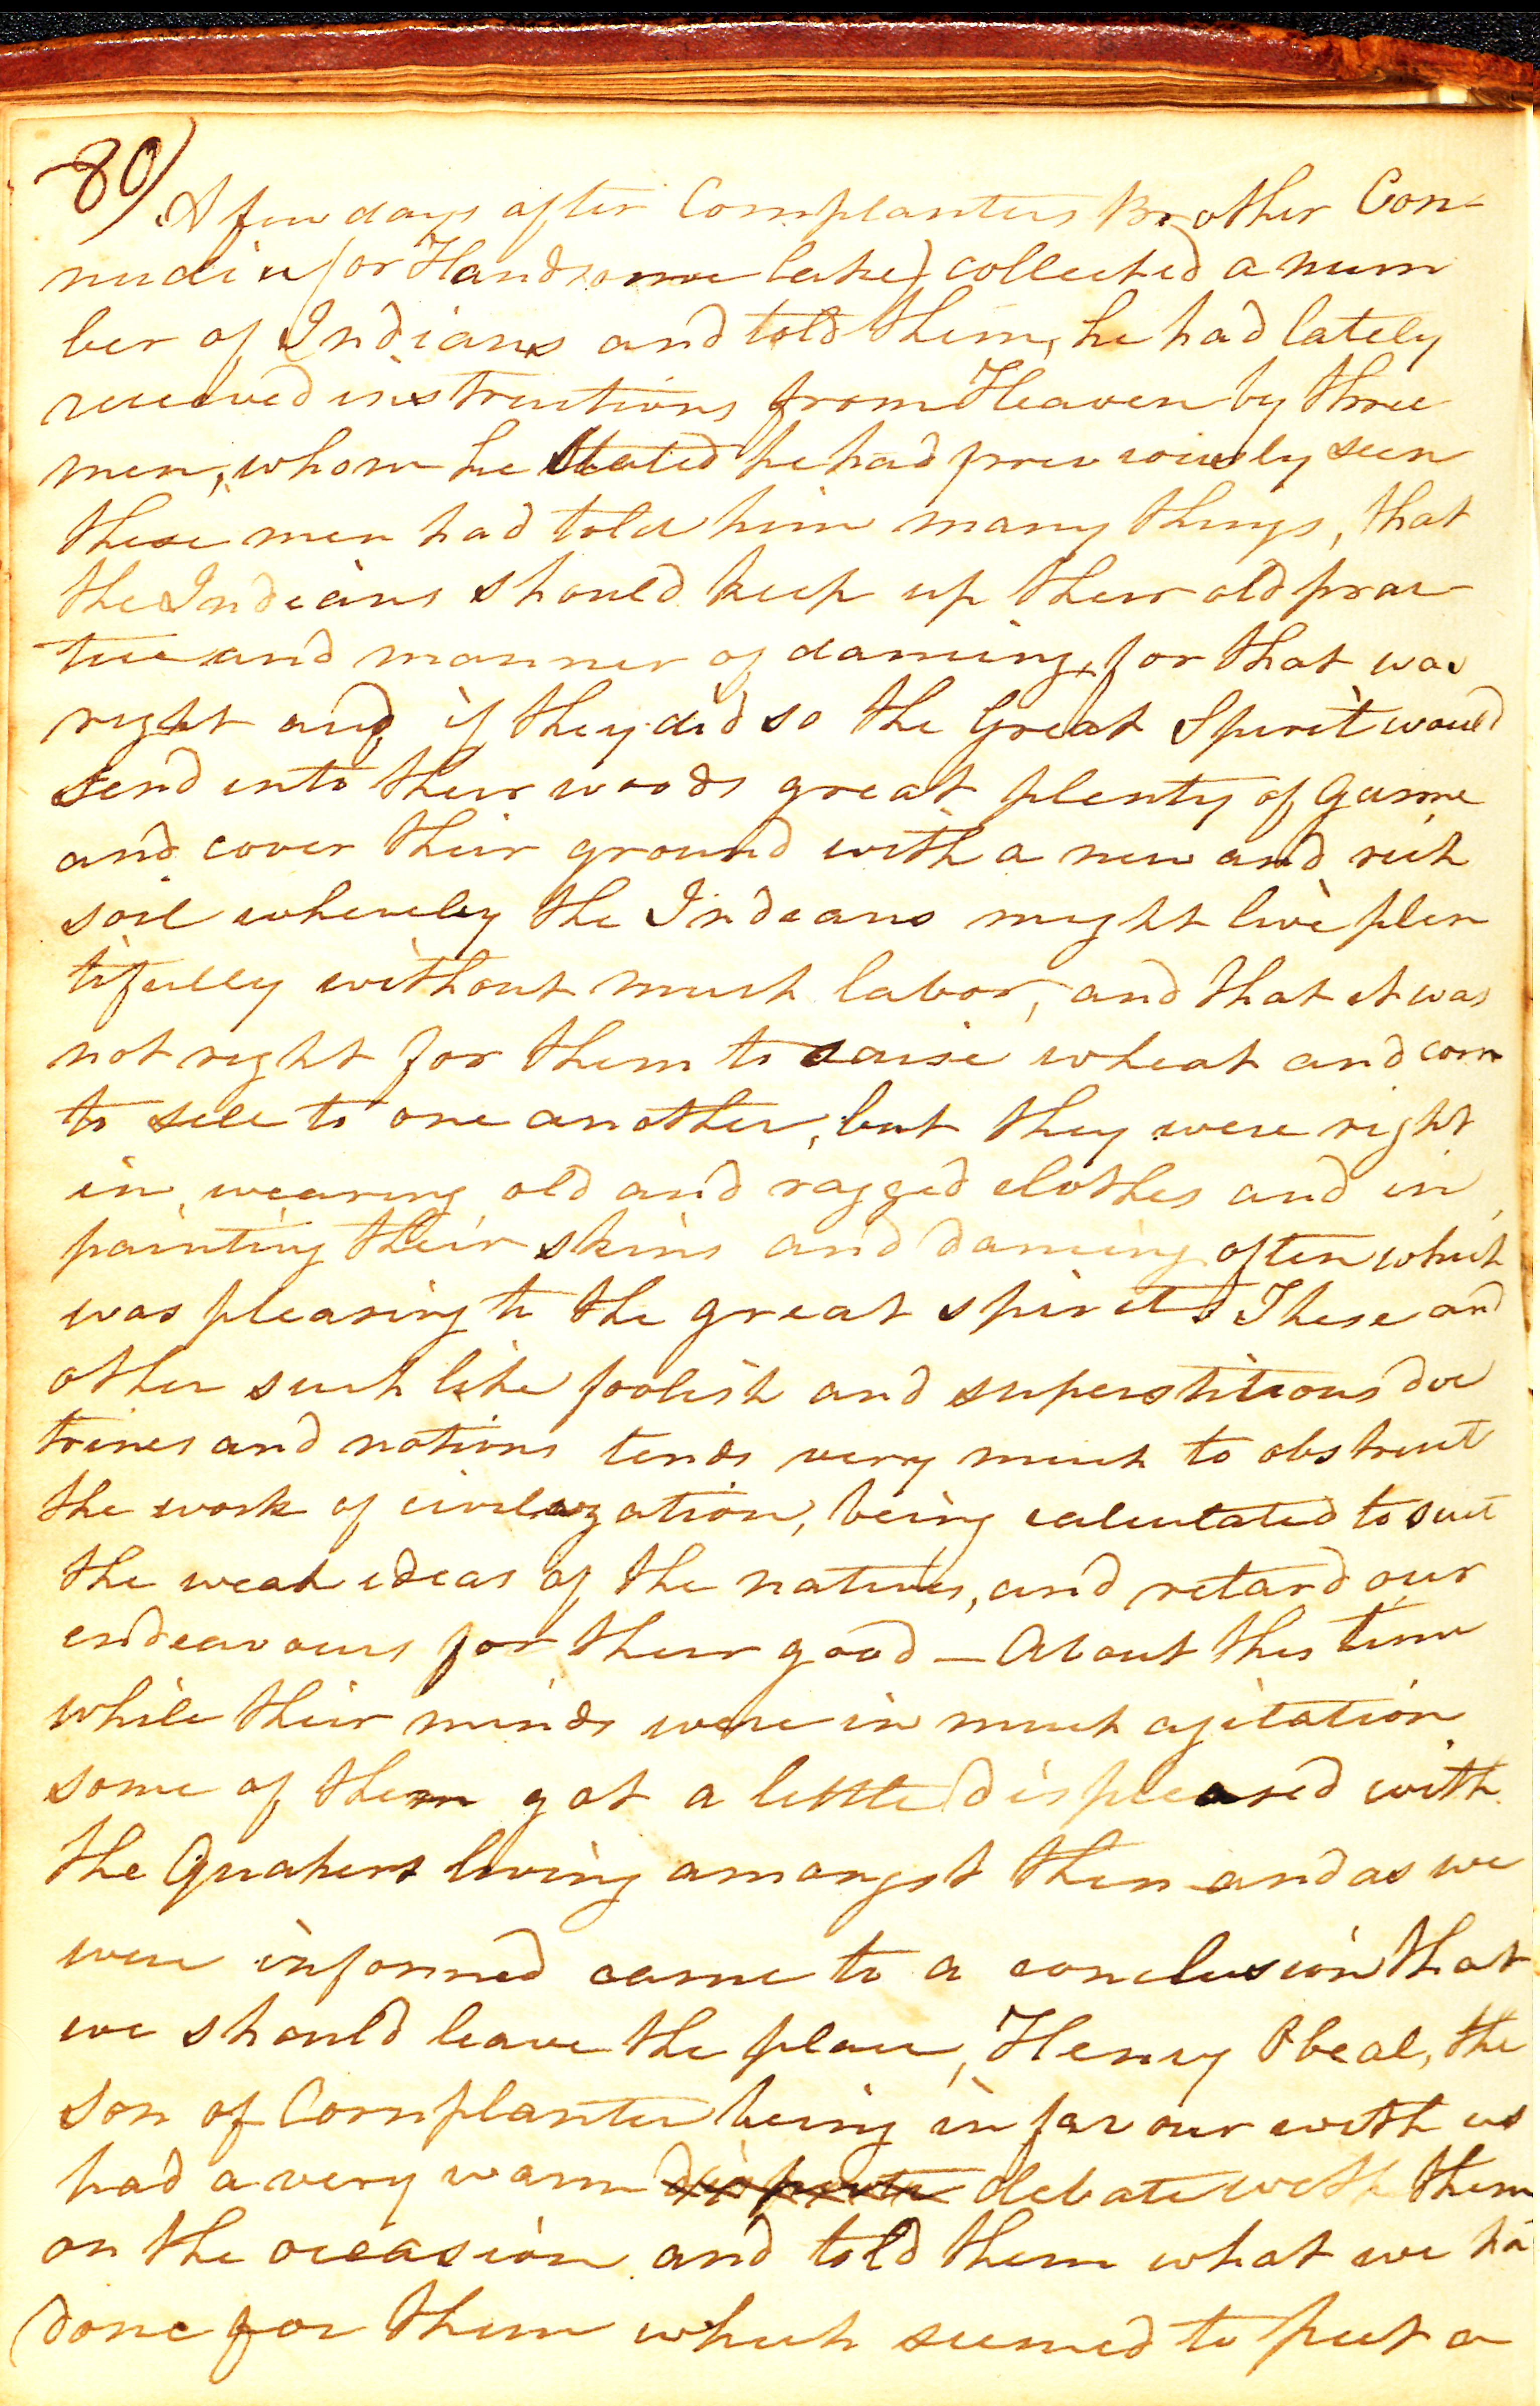 80)
A few days after Cornplanters Brother Con-
nudiu (or Handsome lake) collected a num
ber of Indians and told them, he had lately
received instructions from Heaven by three
men, whom he stated he had previously seen
these men had told him many things, that
the Indians should keep up their old prac
tice and manner of dancing, for that was
right and if they did so the Great Spirit would
send into their woods great plenty of game
and cover their ground with a new and rich
soil whereby the Indians might live plen
tifully without much labor, and that it was
not right for them to raise wheat and corn
to sell to one another, but they were right
in wearing old and ragged clothes and in
painting their skins and dancing often which
was pleasing to the great spirit, These and
other such like foolish and superstitious doc
trines and notions tends very much to obstruct
the work of civilazation, being calculated to suit
the weak ideas of the natives, and retard our
endeavours for their good — About this time
while their minds were in much agitation
some of them got a little displeased with
the Quakers living amongst them and as we
were informed came to a conclusion that
we should leave the place, Henry Obeal, the
son of Cornplanter being in favour with us
had a very warm dispute debate with them
on the occasion and told them what we ha
done for them which seemed to put a